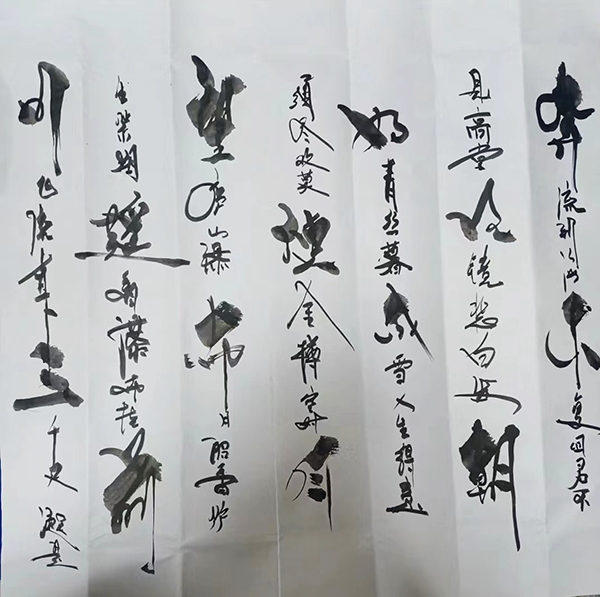 奔流到海不复回君不
見高堂明镜悲白发朝
如青丝暮成雪人生得意
須尽欢莫使金樽空对月
望庐山瀑布日照香炉
生紫烟遥看瀑布挂前
川飞流直下三千尺疑是